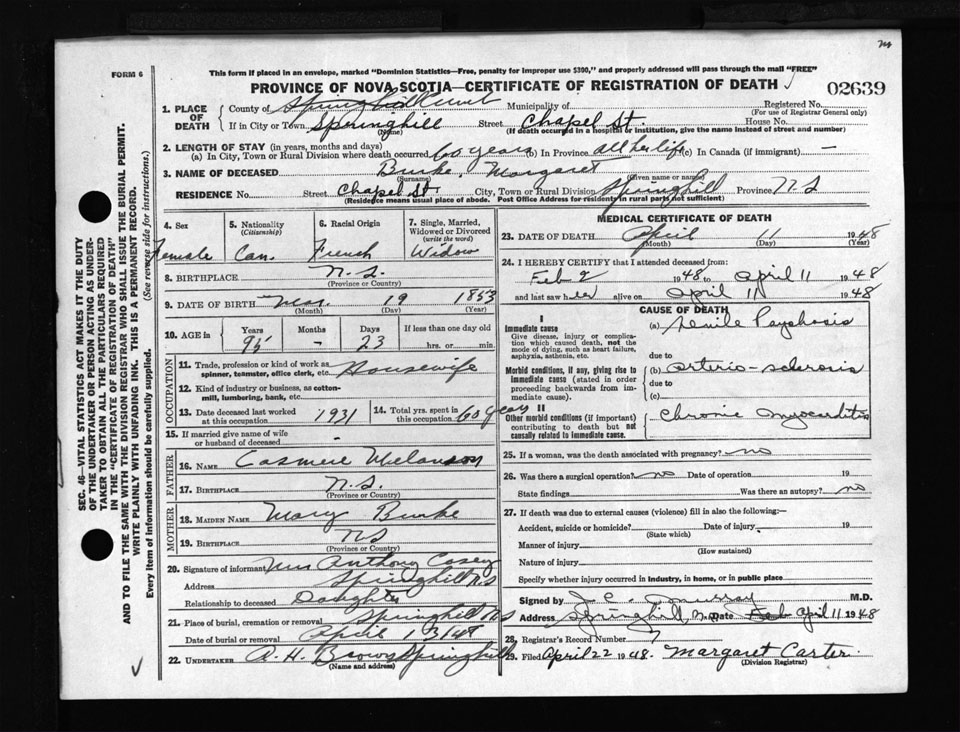 FORM 6
This form if placed in an envelope, marked "Dominion Statistics—Free, penalty for improper use $300," and properly addressed will pass through the mail "FREE"
PROVINCE OF NOVA SCOTIA—CERTIFICATE OF REGISTRATION OF DEATH
02639
1. PLACE OF DEATH
County of Municipality of Registered No.
(For use of Registrar General only)
If in City or Town Springhill Street Chapel St. House No.
(Name) (If death occurred in a hospital or institution, give the name instead of street and number)
2. LENGTH OF STAY (in years, months and days)
(a) In City, Town or Rural Division where death occurred 60 years (b) In Province all her life (c) In Canada (if immigrant) —
3. NAME OF DECEASED Burke, Margaret
(Surname) (Given name or names)
RESIDENCE No. Street Chapel St City, Town or Rural Division Springhill Province N S
(Residence means usual place of abode. Post Office Address for residents in rural parts not sufficient)
4. Sex 5. Nationality (Citizenship) 6. Racial Origin 7. Single, Married, Widowed or Divorced (write the word)
Female Can. French Widow
8. BIRTHPLACE N. S.
(Province or Country)
9. DATE OF BIRTH Mar. 19 1853
(Month) (Day) (Year)
10. AGE in Years Months Days If less than one day old
95 - 23 hrs. or min.
OCCUPATION
11. Trade, profession or kind of work as spinner, teamster, office clerk, etc. Housewife
12. Kind of industry or business, as cotton-mill, lumbering, bank, etc.
13. Date deceased last worked at this occupation 1931 14. Total yrs. spent in this occupation 60 years
15. If married give name of wife or husband of deceased -
FATHER
16. NAME Casmere Melanson
17. BIRTHPLACE N. S.
(Province or Country)
MOTHER
18. MAIDEN NAME Mary Burke
19. BIRTHPLACE N S
(Province or Country)
20. Signature of informant Mrs Anthony Casey
Address Springhill N S
Relationship to deceased Daughter
21. Place of burial, cremation or removal Springhill N S
Date of burial or removal April 13/48
22. UNDERTAKER A. H. Brown Springhill
(Name and address)
MEDICAL CERTIFICATE OF DEATH
23. DATE OF DEATH April 11 1948
(Month) (Day) (Year)
24. I HEREBY CERTIFY that I attended deceased from:
Feb 2 1948 to April 11 1948
and last saw her alive on April 11 1948
CAUSE OF DEATH
I
Immediate cause
Give disease, injury or complication which caused death, not the mode of dying, such as heart failure, asphyxia, asthenia, etc.
(a) Senile Psychosis
due to
Morbid conditions, if any, giving rise to immediate cause (stated in order proceeding backwards from immediate cause).
(b) Arterio-sclerosis
due to
(c)
II
Other morbid conditions (if important) contributing to death but not causally related to immediate cause.
Chronic Myocarditis
25. If a woman, was the death associated with pregnancy? no
26. Was there a surgical operation? no Date of operation 19
State findings Was there an autopsy? no
27. If death was due to external causes (violence) fill in also the following:—
Accident, suicide or homicide? Date of injury 19
(State which)
Manner of injury
(How sustained)
Nature of injury
Specify whether injury occurred in industry, in home, or in public place
Signed by J. C. Murray M.D.
Address Springhill Date April 11 1948
28. Registrar's Record Number
29. Filed April 22 1948. Margaret Carter.
(Division Registrar)
SEC. 46—VITAL STATISTICS ACT MAKES IT THE DUTY
OF THE UNDERTAKER OR PERSON ACTING AS UNDERTAKER TO OBTAIN ALL THE PARTICULARS REQUIRED
IN THE "CERTIFICATE OF REGISTRATION OF DEATH"
AND TO FILE THE SAME WITH THE DIVISION REGISTRAR WHO SHALL ISSUE THE BURIAL PERMIT.
WRITE PLAINLY WITH UNFADING INK. THIS IS A PERMANENT RECORD.
Every item of information should be carefully supplied. (See reverse side for instructions.)